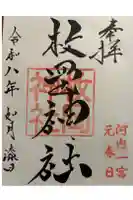 奉拝
河内一宮
元春日
枚岡神社
令和八年